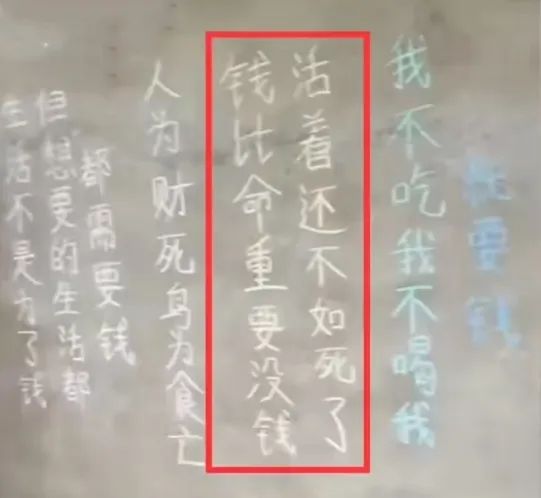 生活不是为了钱
但想要的生活都
都需要钱
人为财死鸟为食亡
钱比命重要没钱
活着还不如死了
我不吃我不喝我
要钱